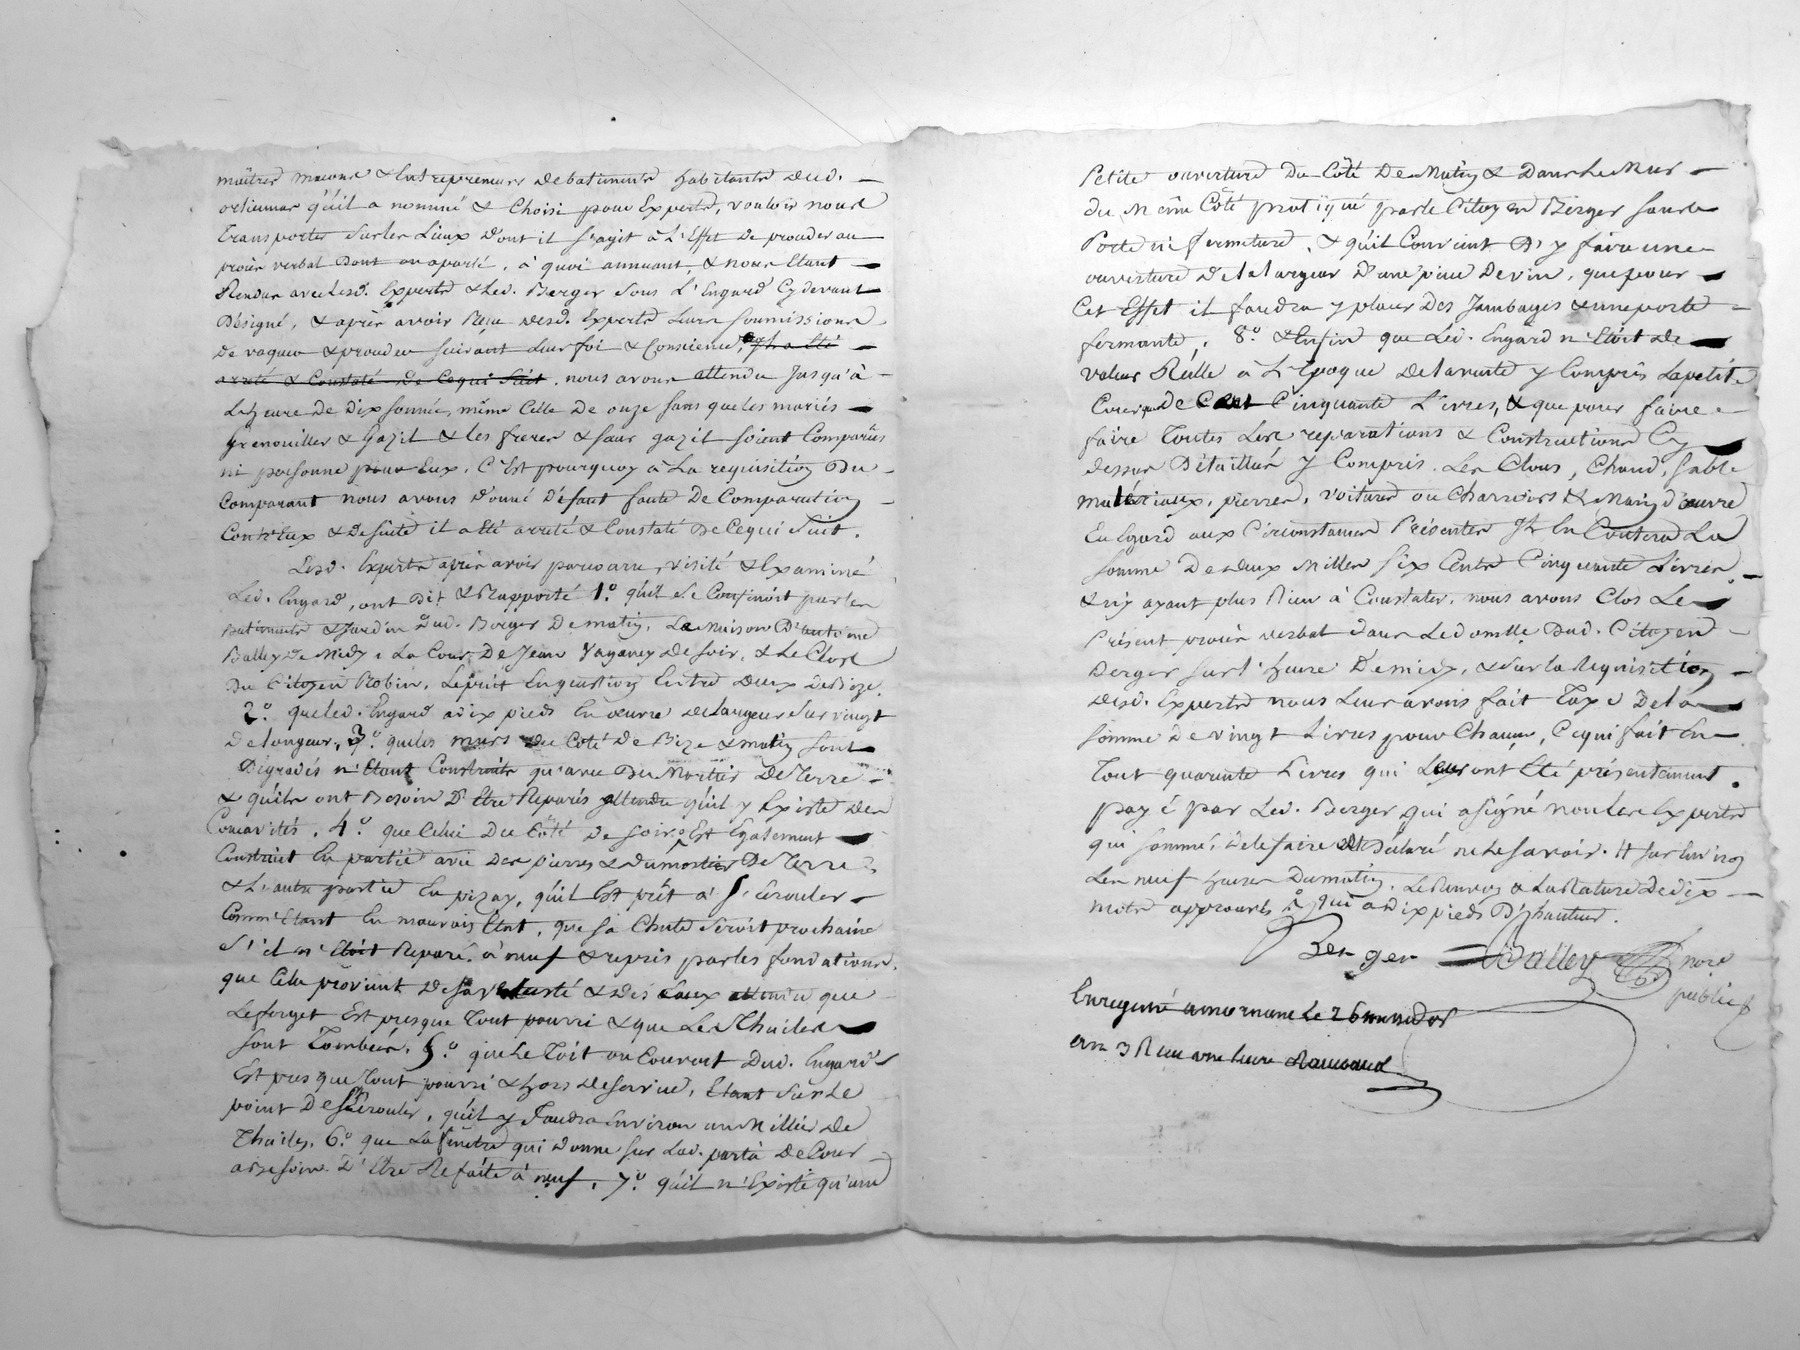 maitres macons & Entrepreneurs de batiments habitants dud.
ortiumar qu'il a nommé & Choisi pour Experts, vouloir nous
transporter Sur les Lieux d'ont il s'agit à L'Effet De proceder au
procès verbal Dont on a parlé, à quoi annuant, & nous Etant
Rendus avec lesd. Experts & Led. Berger Sous L'Engard Cy devant
Désigné, & après avoir Reçu desd. Experts Leurs soumissions
De vaquer & proceder suivant Leur foi & Conscience, il a Eté
arreté & Constaté De Ce qui Suit. nous avons attendu Jusqu'à
L'heure de Dix sonnée, même Celle De onze sans que les mariés
Grenouiller & Gazil & les freres & sœur gazil soient Comparus
ni personne pour Eux, C'Est pourquoy à La requisition Du
Comparant nous avons D'onné D'éfaut faute De Comparution
Contr'Eux & De suite il a Eté arreté & Constaté De Ce qui Suit.
Lesd. Experts après avoir parcouru, visité & Examiné
Led. Engard, ont Dit & Rapporté 1.° qu'il Se Confinoit par les
Batiments & Jardin Dud. Berger De matin, La maison D'antoine
Balley De Midy, La Cour De Jean Vaganey De soir, & Le Clos
Du Citoyen Robin, Le puit En question Entre Deux De Bize.
2.° que led. Engard a dix pieds En œuvre de largeur sur vingt
De longeur, 3.° que les murs du Coté De Bize & matin sont
Dégradés n'Etant Construits qu'avec Du Mortier De Terre
& qu'ils ont Besoin D'Etre Reparés attendu qu'il y Existe Des
Concavités. 4.° que Celui Du Côté De soir Est Egalement
Construit En partie avec Des pierres & du mortier De Terre
& L'autre partie En pizay, qu'il Est prêt à S'écrouler
Comm'Etant En mauvais Etat, que sa Chute Seroit prochaine
S'il n'Etoit Reparé à neuf & repris par les fondations,
que Cela provient De sa vetusté & Des Eaux attendu que
Le forget Est presque Tout pourri & que Les Thuiles
sont Tombées. 5.° que Le Toit ou Couvert Dud. Engard
Est presque Tout pourri & hors De service, Etant Sur Le
point De s'Ecrouler, qu'il y Faudra Environ un Millier De
Thuiles, 6.° que La fenêtre qui Donne sur Lad. partie De Cour
a Besoin D'Etre Refaite à neuf, 7.° qu'il n'Existe qu'une
Petite ouverture Du Côté De Matin & Dans Le Mur
du Même Côté pratiqué par le Citoyen Berger sans
Porte ni fermeture, & qu'il Convient D'y faire une
ouverture De la largeur D'une piece De vin, que pour
Cet Effet il faudra y placer Des Jambages & une porte
fermante, 8.° & Enfin que Led. Engard n'Etoit De
valeur Réelle à L'Epoque De la vente y Compris La petite
Cour que De Cent Cinquante Livres, & que pour faire
faire Toutes Les reparations & Constructions Cy
dessus Détaillées y Compris Les Clous, Chaud, sable
materiaux, pierres, voitures ou Charriois & Main d'œuvre
Eu Egard aux Circonstances Présentes Il En Coutera La
somme De deux Milles six Cents Cinquante Livres,
& n'y ayant plus Rien à Constater, nous avons Clos Le
Présent procès verbal dans Le domicille Dud. Citoyen
Berger sur l'heure De midy, & sur la Requisition
desd. Experts nous Leur avons fait Taxe De la
somme de vingt Livres pour Chacun, Ce qui fait En
Tout quarante Livres qui Leur ont Eté présentement
payé par Led. Berger qui a signé non les Experts
qui sommés de le faire ont Déclaré ne Le savoir. # sur Environ
Les neuf heures Du matin. Le Renvoy & La Rature De dix
mots approuvés & qui a Dix pieds D'hauteur.
Berger Balley nore
public
Enregistré a mornant Le 26 messidor
an 3 Reçu une livre